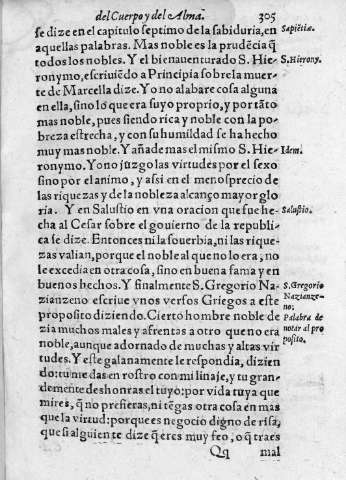 del Cuerpo y del Alma.
305
se dize en el capitulo septimo de la sabiduria, en
Sapiẽtiæ.
aquellas palabras. Mas noble es la prudẽcia q̃
todos los nobles. Y el bienauenturado S. Hie-
S. Hierony.
ronymo, escriuiẽdo a Principia sobre la muer-
te de Marcella dize. Yo no alabare cosa alguna
en ella, sino lo que era suyo proprio, y por tãto
mas noble, pues siendo rica y noble con la po-
breza estrecha, y con su humildad se ha hecho
muy mas noble. Y añade mas el mismo S. Hie-
Idem.
ronymo. Yo no juzgo las virtudes por el sexo
sino por el animo, y assi en el menosprecio de
las riquezas y de la nobleza alcanço mayor glo
ria. Y en Salustio en vna oracion que fue he-
Salustio.
cha al Cesar sobre el gouierno de la republi-
ca se dize. Entonces ni la souerbia, ni las rique-
zas valian, porque el noble al que no lo era, no
le excedia en otra cosa, sino en buena fama y en
buenos hechos. Y finalmente S. Gregorio Na-
S. Gregorio
zianzeno escriue vnos versos Griegos a este
Nazianze-
no:
proposito diziendo. Cierto hombre noble de
Palabra de
zia muchos males y afrentas a otro que no era
notar al pro
noble, aunque adornado de muchas y altas vir
posito.
tudes. Y este galanamente le respondia, dizien
do: tu me das en rostro con mi linaje, y tu gran-
demente deshonras el tuyo: por vida tuya que
mires, q̃ no prefieras, ni tẽgas otra cosa en mas
que la virtud: porque es negocio digno de risa,
que si alguien te dize q̃ eres muy feo, o q̃ traes
Qq
mal